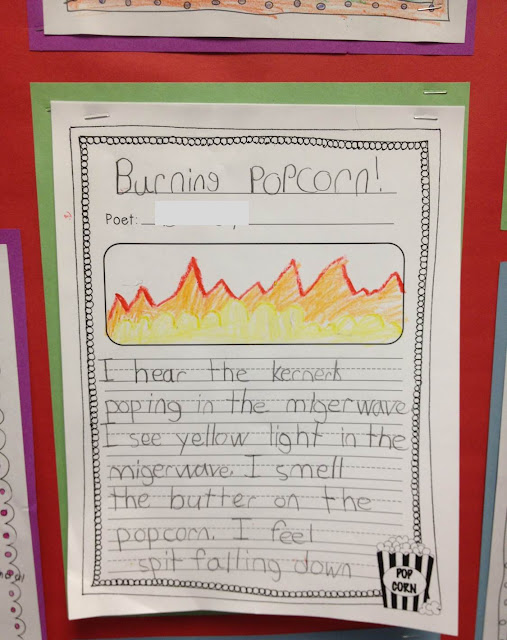 Burning PoPcorn!
Poet:
I hear the
poping in the miger wave
I see yellow light in the
migerwave. I smell
the butter on the
popcorn. I feel
spit falling down
POP
CORN